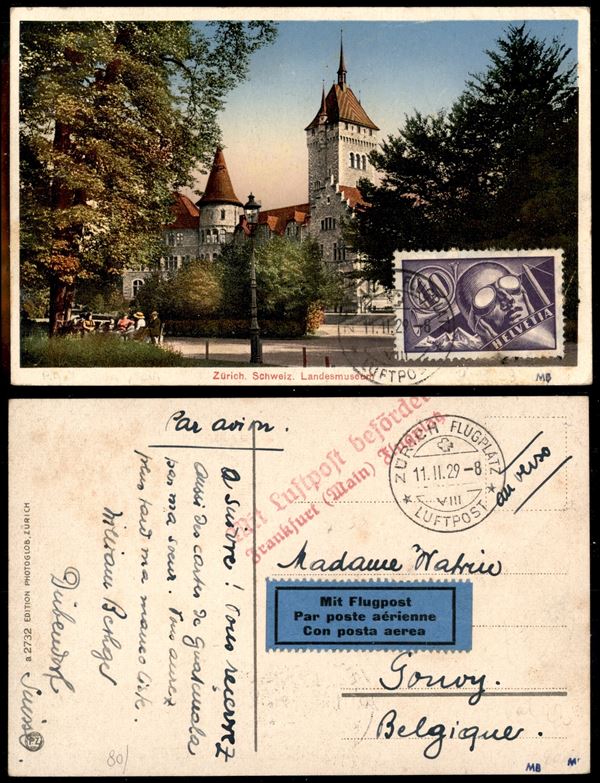 40
HELVETIA
11.II.29-8
LUFTPOST
Zürich. Schweiz. Landesmuseum
MB
Par avion.
Mit Luftpost befördert
Frankfurt (Main) Flugplatz
ZÜRICH FLUGPLATZ
11.II.29-8
VIII
LUFTPOST
au verso
A suivre! Vous recevrez
Aussi des cartes de Guatemala
par ma soeur. Vous aurez
plus tard ma manco liste.
William
Dübendorf
Suisse
Madame Watrin
Mit Flugpost
Par poste aérienne
Con posta aerea
Gouvy.
Belgique.
a 2732 EDITION PHOTOGLOB, ZÜRICH
PZ
80/
MB